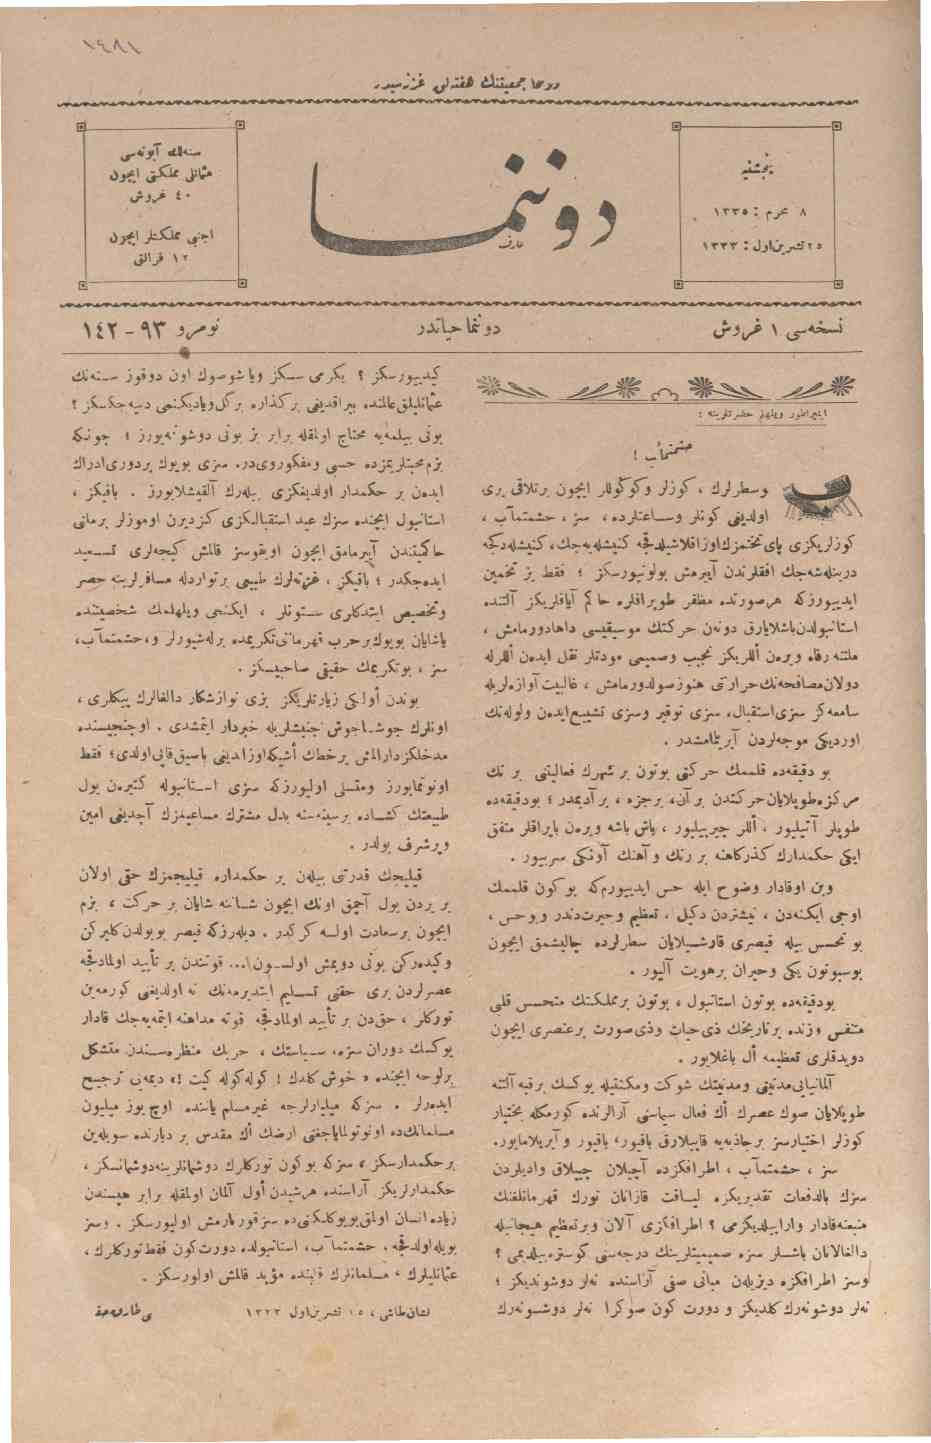 ١٤٨١
دونما جمعیتنك هفته‌لق غزته‌سیدر
پنجشنبه
٨ محرم : ١٣٣٥
٢٥ تشرین‌اول : ١٣٣٣
دوننما
عارف
سنه‌لك آبونه‌سی
عثمانلی مملكتی ایچون
٤٠ غروش
اجنبی مملكتلر ایچون
١٢ فرانق
نسخه‌سی ١ غروش
دوننما حیاتدر
نومرو ٩٣ - ١٤٢
ایمپراطور ویلهلم حضرتلرینه :
حشمتمآب !
وسطرلرك ، كوزلر وكوكوللر ایچون برتلاقی یری
اولدیغی كونلر وساعتلرده ، سز ، حشمتمآب ،
كوزلریكزی پای تختمزك اوزاقلاشیلدقجه كنیشله‌یه‌جك ، كنیشله‌دكجه
درینله‌شه‌جك افقلرندن آییرمش بولونیورسكز ؛ فقط بز تخمین
ایدییورزكه هرصورتده مظفر طوپراقلره حاكم آیاقلریكز آلتنده
استانبولدن باشلایارق دونه‌ن حركتك موسیقیسی داها دورمامش ،
ملتنه رفاه ویره‌ن أللریكز نجیب وصمیمی مودتلر نقل ایدن أللرله
دولان مصافحه‌نك حرارتی هنوز صولدورمامش ، غالبیت آوازه‌لریله
سامعه‌كز سزی استقبال، سزی توقیر وسزی تشییع ایدن ولوله‌نك
اوردیكی موجه‌لردن آیریلمامشدر .
بو دقیقه‌ده قلممك حركتی بوتون بر شهرك فعالیتنی بر تك
مركزه طوپلایان حركتدن بر آن، برجزء ، بر آدیمدر ؛ بودقیقه‌ده
طوپلر آتیلیور ، أللر چیرپیلیور ، یاش باشه ویره‌ن بایراقلر متفق
ایكی حكمدارك گذركاهنه بر رنك و آهنك آونكی سرییور .
وبن اوقادار وضوح ایله حس ایدییورم‌كه بو كون قلممك
اوجی ایكنه‌دن ، نیشتردن دكیل ، تعظیم وحیرتدندر وبوحس ،
بو تحسس بیله قیصری قارشیلایان سطرلرده چالیشمق ایچون
بوسبوتون یكی وحیران برهویت آلیور .
بودقیقه‌ده بوتون استانبول ، بوتون برمملكتك متحسس قلبی
متنفس وزنده برتاریخك ذی‌حیات وذی‌صورت برعنصری ایچون
دویدقلری تعظیمه أل باغلایور .
آلمانیایی مدنیتی ومدنیتك شوكت ومكنتیله یوكسك برقبه آلتنه
طوپلایان صوك عصرك أك فعال سیماسنی آرالرنده كورمكله بختیار
كوزلر اختیارسز برجاذبه‌یه قاپیلارق باقیور، باقیور و آیریلامایور.
سز ، حشمتمآب ، اطرافكزده آچیلان چیپلاق وادیلردن
سزك بالدفعات تقدیریكزه لیاقت قازانان تورك قهرمانلغنك
منبعنه‌قادار وارا بیلدیكزمی ؟ اطرافكزی آلان وبرتعظیم هیجانیله
دالغالانان باشلر سزه صمیمیتلرینك درجه‌سنی كوستره‌بیلدیمی ؟
وسز اطرافكزه دیزیله‌ن مبانی صفی آراسنده نه‌لر دوشوندیكز ؛
نه‌لر دوشونه‌رك كلدیكز و دورت كون صوكرا نه‌لر دوشونه‌رك
كیدییورسكز ؟ یكرمی سكز ویا شوصوك اون دوقوز سنه‌نك
عثمانلیلق عالمنده بیراقدیغی بر كذاره بركل ویا دیكنمی دییه‌جكسكز ؟
بونی بیلمه‌یه محتاج اولمقله برابر بز بونی دوشونه‌یورز ؛ چونكه
بزم محبتلریمزده حسی ومفكوروی‌در. سزی بویوك بردوری ادراك
ایدن بر حكمدار اولدیغكزی بیله‌رك آلقیشلایورز . باقیكز ،
استانبول ایچنده سزك عید استقبالكزی كزدیرن اوموزلر برمانی
حاكمیتدن آییرمامق ایچون اویقوسز قالمش كیجه‌لری تسعید
ایده‌جكدر ؛ باقیكز ، غزته‌لرك طبیعی برتواردله مسافرلرینه حصر
وتخصیص ایتدكلری ستونلر ، ایكنجی ویلهلمك شخصیتنده
یاشایان بویوك برحرب قهرماننی تكریمده برله‌شیورلر و، حشمتمآب،
سز ، بوتكریمك حقیقی صاحبیسكز .
بوندن أولكی زیارتلریكز بزی نوازشكار دالغالرك ییكلری ،
اونلرك جوشاجوش جنبشلریله خبردار ایتمشدی . اوچنجیسنده
مدخلكز دارالمش برخطك أشیكه اوزاندیغی باصیق قاپی‌اولدی؛ فقط
اونوتمایورز ومتسلی اولیورزكه سزی استانبوله كتیره‌ن یول
طبیعتك كشاده بر سینه‌سنه بدل مشترك مساعیمزك آچدیغی امین
وپرشرف یولدر .
قیلیجك قدرتنی بیله‌ن بر حكمداره قیلیجمزك حقی اولان
بر یردن یول آچمق اونك ایچون شاننه شایان بر حركت ، بزم
ایچون برسعادت اولسه كركدر . دیله‌رزكه قیصر بویولدن كلیركن
وكیده‌ركن بونی دویمش اولسون!... قوتندن بر تأیید اولمادقجه
عصرلردن بری حقنی تسلیم ایتدیرمه‌نك نه اولدیغنی كورمه‌ین
توركلر ، حق‌دن بر تأیید اولمادقجه قوته مداهنه ایتمه‌یه‌جك قادار
یوكسك دوران سزه، سیاستك ، حربك منظره‌سندن متشكل
برلوحه ایچنده « خوش كلدك ! كوله‌كوله كیت !» دیمه‌یی ترجیح
ایده‌رلر . سزكه میلیارلرجه غیرمسلم یاننده اوچ یوز میلیون
مسلمانك‌ده اونوتولمایاجغنی ارضك أك مقدس بر دیارنده سویله‌ین
برحكمدارسكز ، سزكه بوكون توركلرك دوشمانلرینه دوشمانسكز ،
حكمدارلریكز آراسنده هرشیدن أول آلمان اولمقله برابر هپسندن
زیاده انسان اولمق بویوكلكنی‌ده سز قورتارمش اولیورسكز . وسز
بویله‌اولدقجه ، حشمتمآب، استانبولده دورت كون فقط توركلرك ،
عثمانلیلرك ، مسلمانلرك قلبنده مؤید قالمش اولورسكز .
نشان‌طاشی ، ١٥ تشرین‌اول ١٣٣٣